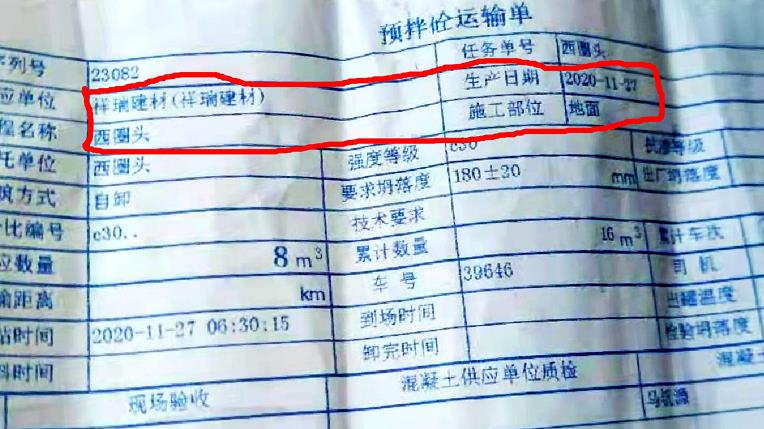 预拌砼运输单
序列号 23082 任务单号 西圈头
应单位 祥瑞建材(祥瑞建材) 生产日期 2020-11-27
程名称 西圈头 施工部位 地面
托单位 西圈头 强度等级 c30 抗渗等级
筑方式 自卸 要求坍落度 180±20 mm 出厂坍落度
比编号 c30.. 技术要求
应数量 8 m³ 累计数量 16 m³ 累计车次
输距离 km 车号 39646 司机
站时间 2020-11-27 06:30:15 到场时间 出罐温度
料时间 卸完时间 检验坍落度
现场验收 混凝土供应单位质检 混
马凯源